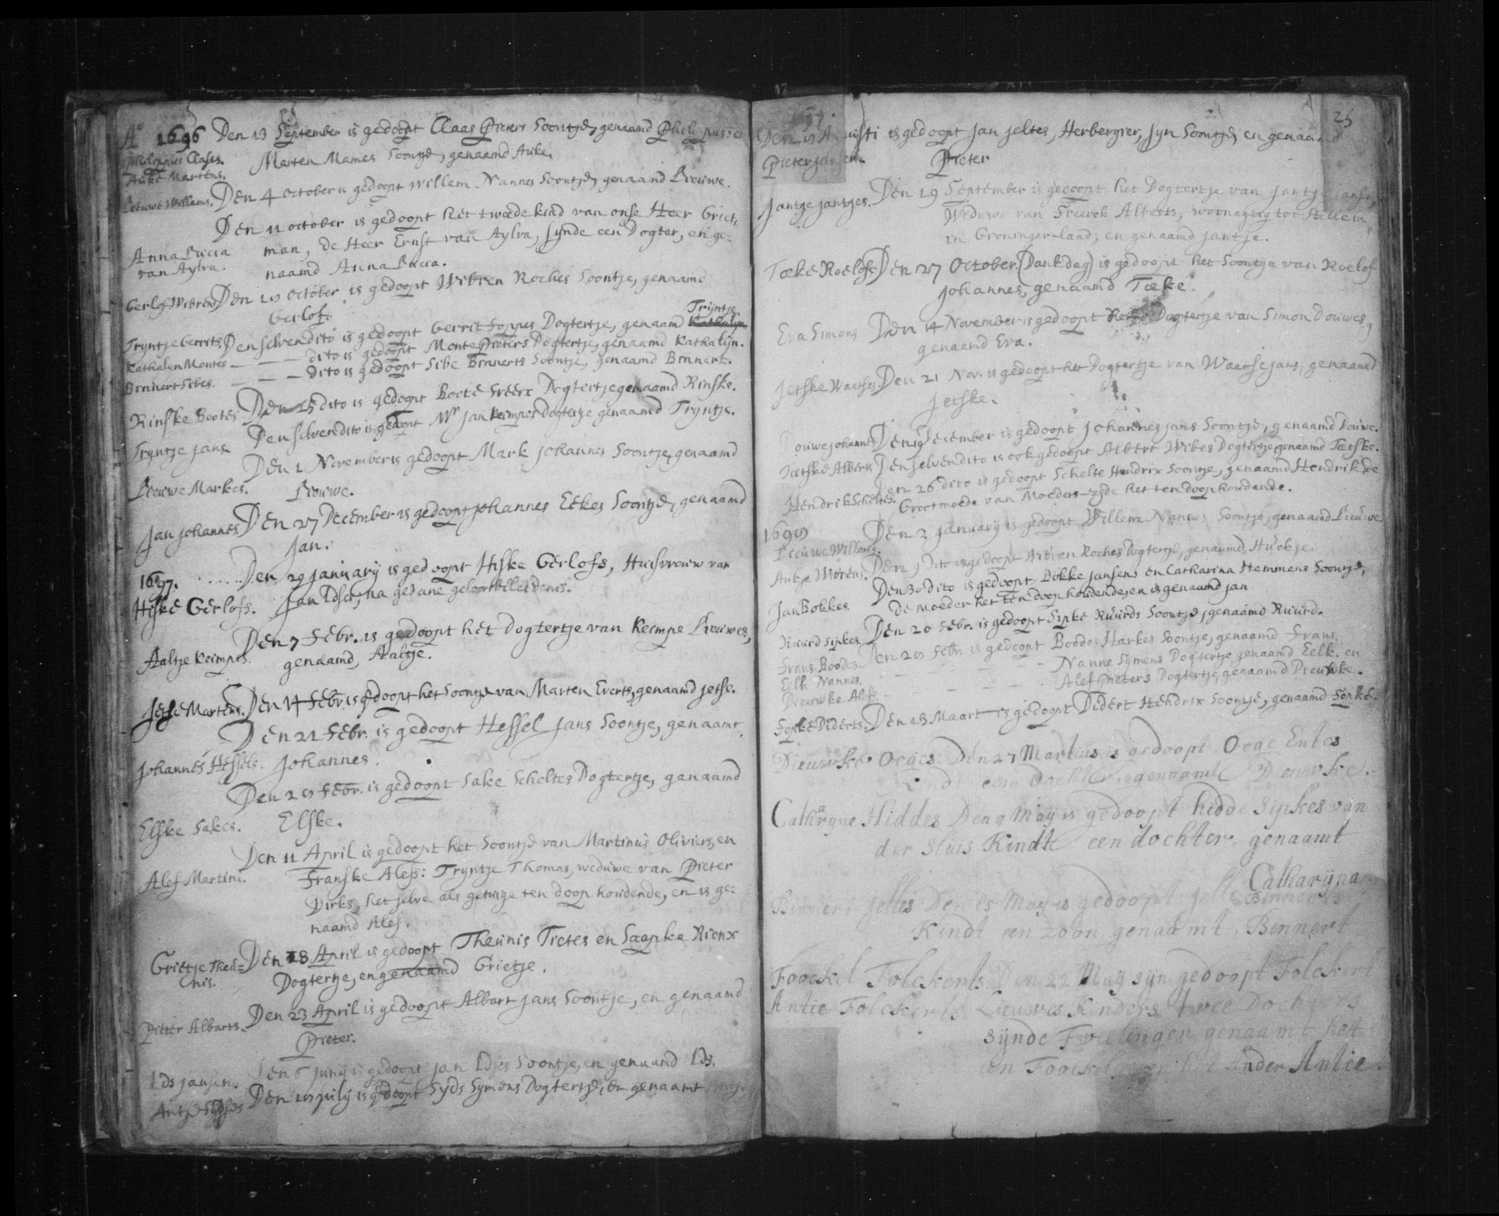 Ao 1696 Den 13 September is gedoopt Claas Pieters Soontje, genaamd Philippus
Philippus Clases. Marten Mames Soontje, genaamd Auke.
Auke Martens.
Lieuwe Willems. Den 4 October is gedoopt Willem Nannes Soontje, genaamd Lieuwe.
Den 11 october is gedoopt het tweede kind van onse Heer Griet-
Anna Lucia man, de Heer Ernst van Aylva, synde een Dogter, en ge-
van Aylva. naamd Anna Lucia.
Gerlof Wibren Den october is gedoopt Wibren Roelies Soontje, genaamd
Gerlof.
Tryntje
Tryntje Gerrits Den selven dito is gedoopt Gerrit Foppes Dogtertje, genaamd
Kathalyn Montes — — — dito is gedoopt Monte Pieters Dogtertje, genaamd Kathalijn.
Binnert Sibes. — — — dito is gedoopt Sibe Binnerts Soontje, genaamd Binnert.
Rinske Bootes Den 25 dito is gedoopt Boote Freerx Dogtertje genaamd Rinske.
Tryntje Jans Den selven dito is gedoopt Mr Jan Keimpes Dogtertje genaamd Tryntje.
Den 1 November is gedoopt Mark Johannes Soontje, genaamd
Lieuwe Markes. Lieuwe.
Jan Johannes Den 27 December is gedoopt Johannes Eekes Soontje, genaamd
Jan.
1697. Den 29 januarij is gedoopt Hiske Gerlofs, Huisvrouw van
Hiske Gerlofs. Jan na gedane geloofsbelijdenis.
Den 7 Febr. is gedoopt het dogtertje van Keimpe Lieuwes,
Aaltje Keimpes. genaamd, Aaltje.
Jetse Martens. Den 14 Febr. is gedoopt het Soontje van Marten Everts, genaamd Jetse.
Den 21 Febr. is gedoopt Hessel Jans Soontje, genaamt
Johannes Hessels. Johannes.
Den 28 Febr. is gedoopt Sake Scheltes Dogtertje, genaamd
Elske Sakes. Elske.
Den 11 April is gedoopt het Soontje van Martinus Oliviers, en
Alef Martini. Franske Alefs: Tryntje Thomas, weduwe van Pieter
Dirks, het selve als getuige ten doop houdende, en is ge-
naamd Alef.
Grietje Theu- Den 18 April is gedoopt Theunis Tietes en Saapke Rienx
nis. Dogtertje, en genaamd Grietje.
Pieter Albarts. Den 23 April is gedoopt Albart Jans Soontje, en genaamd
Pieter.
Eds Jansen. Den junij is gedoopt Jan Edses Soontje, en genaamd Eds.
Antje Den julij is gedoopt Syds Symons Dogtertje, en genaamt
Den 19 Augusti is gedoopt Jan Jeltes, Herbergier, syn Soontje, en genaamd
Pieter Pieter
Jantje Jantjes. Den 19 September is gedoopt het Dogtertje van Jantje
Weduwe van Freerk Alberts, woonagtig tot
in Groninger-land, en genaamd Jantje.
Tæke Roelofs Den 27 October (Dankdag) is gedoopt het Soontje van Roelof
Johannes, genaamd Tæke.
Eva Simons Den 14 November is gedoopt het Dogtertje van Simon Douwes,
genaamd Eva.
Jetske Waatses Den 21 Nov. is gedoopt het Dogtertje van Waatse Jans, genaamd
Jetske.
Douwe Johannes Den December is gedoopt Johannes Jans Soontje, genaamd Douwe.
Jetske Alberts Den selven dito is ook gedoopt Albert Wibes Dogtertje genaamd Jetske.
Hendrik Scheltes Den 26 dito is gedoopt Schelte Hendrix Soontje, genaamd Hendrik, de
Grootmoeder van Moeders-zyde het ten doop houdende.
1698 Den 2 januarij is gedoopt Willem Nannes Soontje, genaamd Lieuwe
Lieuwe Willems.
Den 9 Dito is gedoopt Roelies Dogtertje, genaamd,
Jan Bokkes Den 30 dito is gedoopt Bokke Jansens en Catharina Hemmens Soontje,
de Moeder het ten doop houdende, en is genaamd Jan
Ruurd Sipkes Den 20 Febr. is gedoopt Sipke Ruurds Soontje, genaamd Ruurd.
Frans Boodes Den 20 Febr. is gedoopt Boode Harkes Soontje, genaamd Frans
Eelk Nannes — — — Nanne Symens Dogtertje genaamd Eelk. en
Dieuwke Alefs — — — Alef Pieters Dogtertje, genaamd Dieuwke.
Fopke Dederts Den 13 Maart is gedoopt Dedert Hendrix Soontje, genaamd Fopke.
Dieuwke Oeges Den 27 Martius is gedoopt Oege Entes
Kind een dochter genaamt Dieuwke.
Catharyna Hiddes Den 9 Maij is gedoopt hidde Sijkes van
der Sluis Kindt een dochter, genaamt
Catharijna
Binnert Jelles Den 15 Maij is gedoopt Jelle Binnerts
Kindt een zoon genaamt, Binnert
Foockel Folckerts Den 22 Maij sijn gedoopt Folckert
Antie Folckerts Lieuwes Kinders twee Dochters
sijnde Tweelingen genaamt het
een Foockel, en het ander Antie